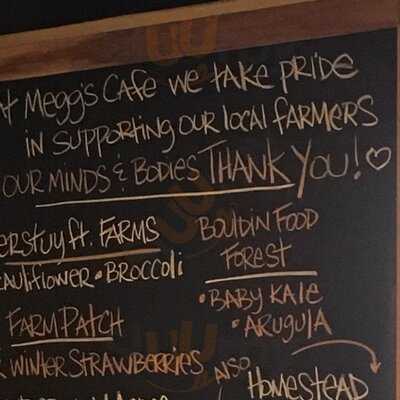 At Megg's Cafe we take pride
in supporting our local farmers
our minds & bodies THANK YOU! ♡
erstuyft. Farms
cauliflower • Broccoli
Farm Patch
winter strawberries
Bouldin Food
Forest
• Baby Kale
• Arugula
ALSO
Homestead